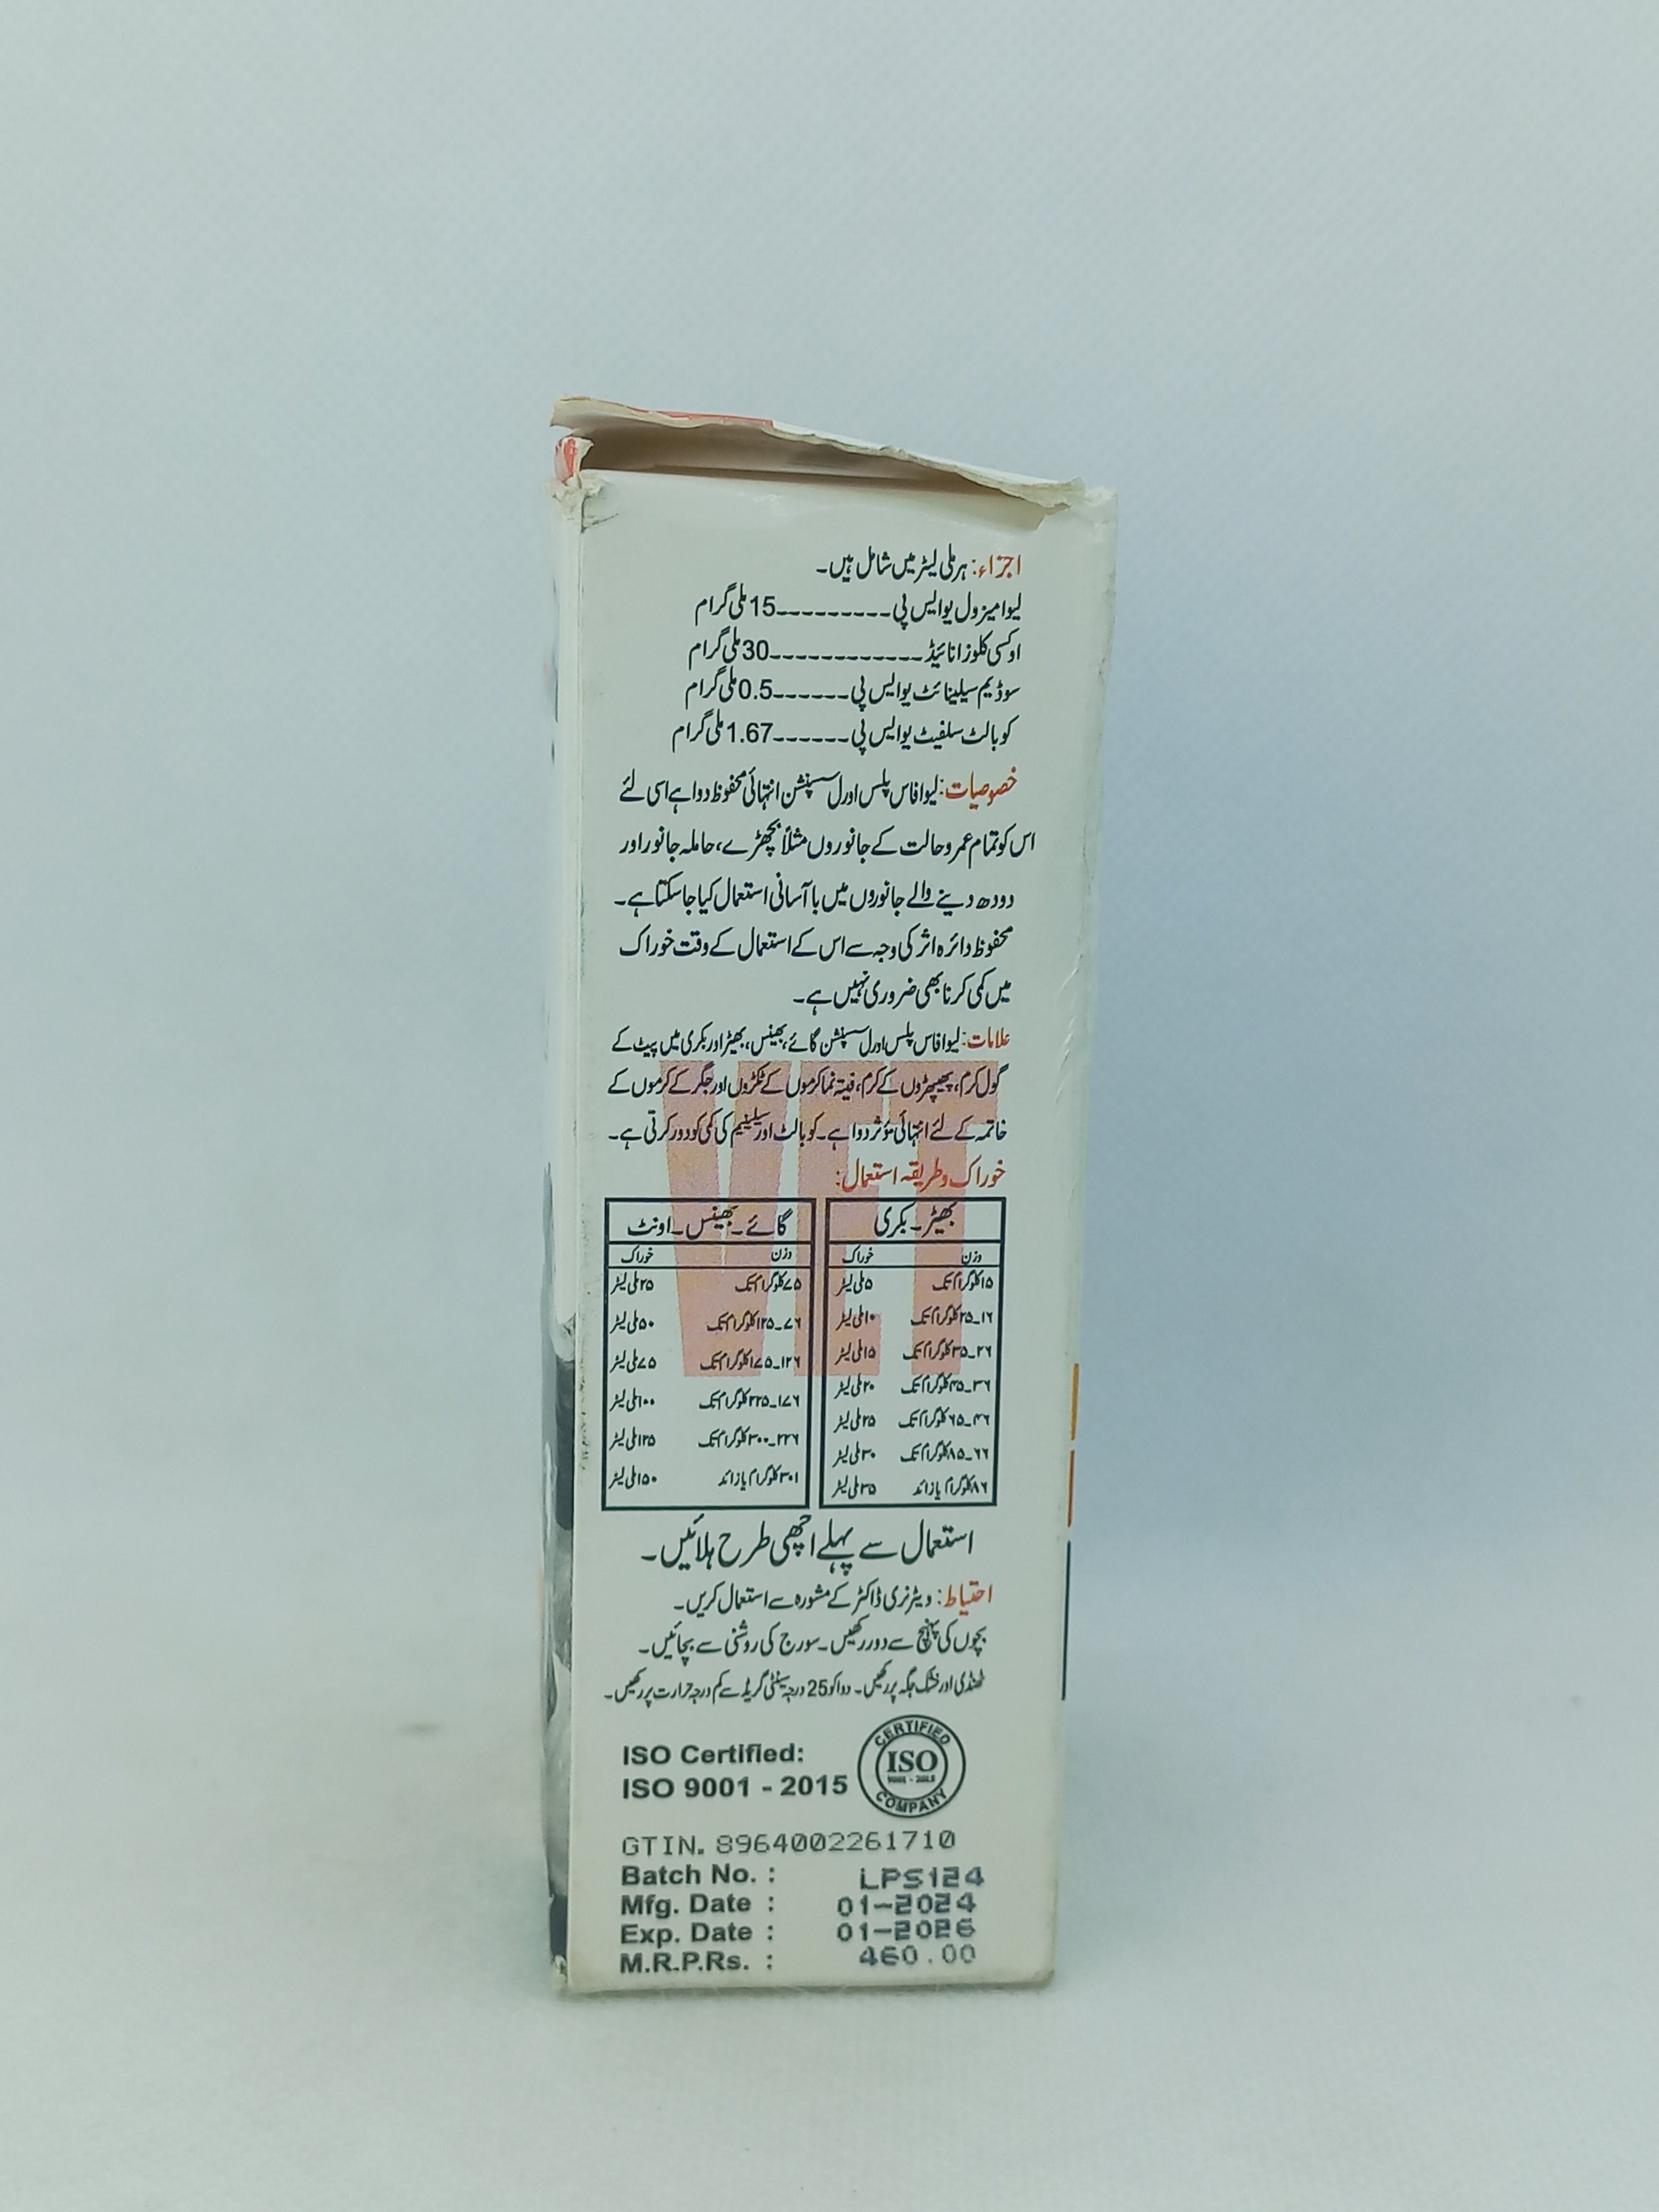 اجزاء: ہر ملی لیٹر میں شامل ہیں۔
لیوامیزول یو ایس پی---------15 ملی گرام
اوکسی کلوزانائیڈ------------30 ملی گرام
سوڈیم سیلینائٹ یو ایس پی------0.5 ملی گرام
کوبالٹ سلفیٹ یو ایس پی------1.67 ملی گرام
خصوصیات: لیوافاس پلس اورل سسپنشن انتہائی محفوظ دوا ہے اسی لئے
اس کو تمام عمر و حالت کے جانوروں مثلاً بچھڑے، حاملہ جانور اور
دودھ دینے والے جانوروں میں باآسانی استعمال کیا جا سکتا ہے۔
محفوظ دائرہ اثر کی وجہ سے اس کے استعمال کے وقت خوراک
میں کمی کرنا بھی ضروری نہیں ہے۔
علامات: لیوافاس پلس اورل سسپنشن گائے، بھینس، بھیڑ اور بکری میں پیٹ کے
گول کرم، پھیپھڑوں کے کرم، فیتہ نما کرموں کے ٹکڑوں اور جگر کے کرموں کے
خاتمہ کے لئے انتہائی مؤثر دوا ہے۔ کوبالٹ اور سیلینیم کی کمی کو دور کرتی ہے۔
VET
خوراک و طریقہ استعمال:
بھیڑ۔ بکری
وزن خوراک
۱۵ کلوگرام تک ۵ ملی لیٹر
۱۶-۲۵ کلوگرام تک ۱۰ ملی لیٹر
۲۶-۳۵ کلوگرام تک ۱۵ ملی لیٹر
۳۶-۴۵ کلوگرام تک ۲۰ ملی لیٹر
۴۶-۶۵ کلوگرام تک ۲۵ ملی لیٹر
۶۶-۸۵ کلوگرام تک ۳۰ ملی لیٹر
۸۶ کلوگرام یا زائد ۳۵ ملی لیٹر
گائے۔ بھینس۔ اونٹ
وزن خوراک
۷۵ کلوگرام تک ۲۵ ملی لیٹر
۷۶-۱۲۵ کلوگرام تک ۵۰ ملی لیٹر
۱۲۶-۱۷۵ کلوگرام تک ۷۵ ملی لیٹر
۱۷۶-۲۲۵ کلوگرام تک ۱۰۰ ملی لیٹر
۲۲۶-۳۰۰ کلوگرام تک ۱۲۵ ملی لیٹر
۳۰۱ کلوگرام یا زائد ۱۵۰ ملی لیٹر
استعمال سے پہلے اچھی طرح ہلائیں۔
احتیاط: ویٹرنری ڈاکٹر کے مشورہ سے استعمال کریں۔
بچوں کی پہنچ سے دور رکھیں۔ سورج کی روشنی سے بچائیں۔
ٹھنڈی اور خشک جگہ پر رکھیں۔ دوا کو 25 درجہ سینٹی گریڈ سے کم درجہ حرارت پر رکھیں۔
ISO Certified:
ISO 9001 - 2015
CERTIFIED
ISO
9001 - 2015
COMPANY
GTIN. 8964002261710
Batch No. : LPS124
Mfg. Date : 01-2024
Exp. Date : 01-2026
M.R.P.Rs. : 460.00